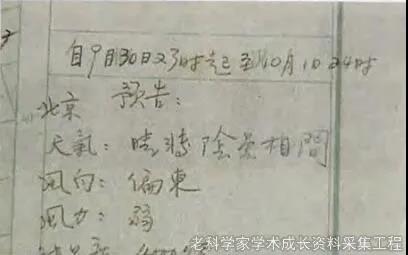 自9月30日23时起至10月1日24时
北京 预告:
天氣: 晴转陰雲相間
風向: 偏東
風力: 弱
老科学家学术成长资料采集工程